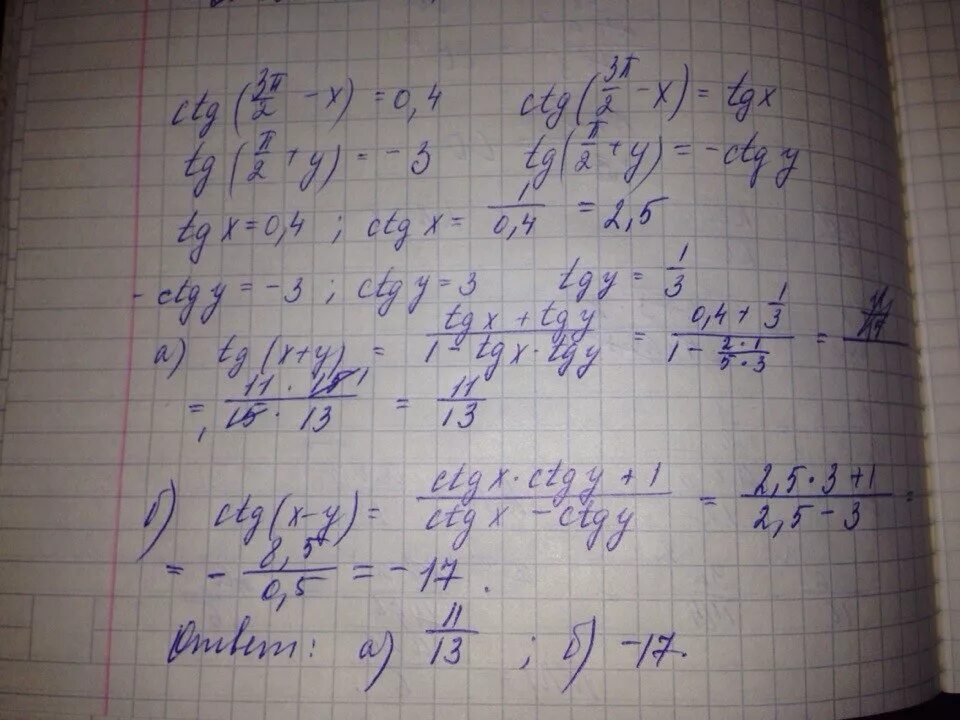 ctg(3π/2 - x) = 0,4    ctg(3π/2 - x) = tgx
tg(π/2 + y) = -3    tg(π/2 + y) = -ctg y
tg x = 0,4 ; ctg x = 1/0,4 = 2,5
-ctg y = -3 ; ctg y = 3    tg y = 1/3
а) tg(x+y) = (tg x + tg y)/(1 - tg x · tg y) = (0,4 + 1/3)/(1 - (2·1)/(5·3)) =
= (11 · 15)/(15 · 13) = 11/13
б) ctg(x-y) = (ctg x · ctg y + 1)/(ctg x - ctg y) = (2,5·3+1)/(2,5-3) =
= - 8,5/0,5 = -17.
Ответ: а) 11/13 ; б) -17.